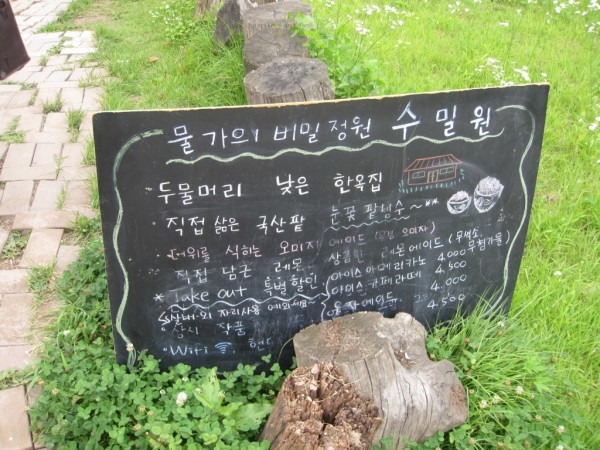 물가의 비밀정원 수밀원
두물머리 낮은 한옥집
· 직접 삶은 국산팥 눈꽃 팥빙수 ~
· 더위를 식히는 오미자 에이드
직접 담근 레몬 상큼한 레몬에이드 (무색소, 무첨가물)
* Take out 특별할인 아이스 아메리카노 4,000
아이스 카페라떼 4,500
실내·외 자리사용 4,000
상시 작품 4,500
· Wifi